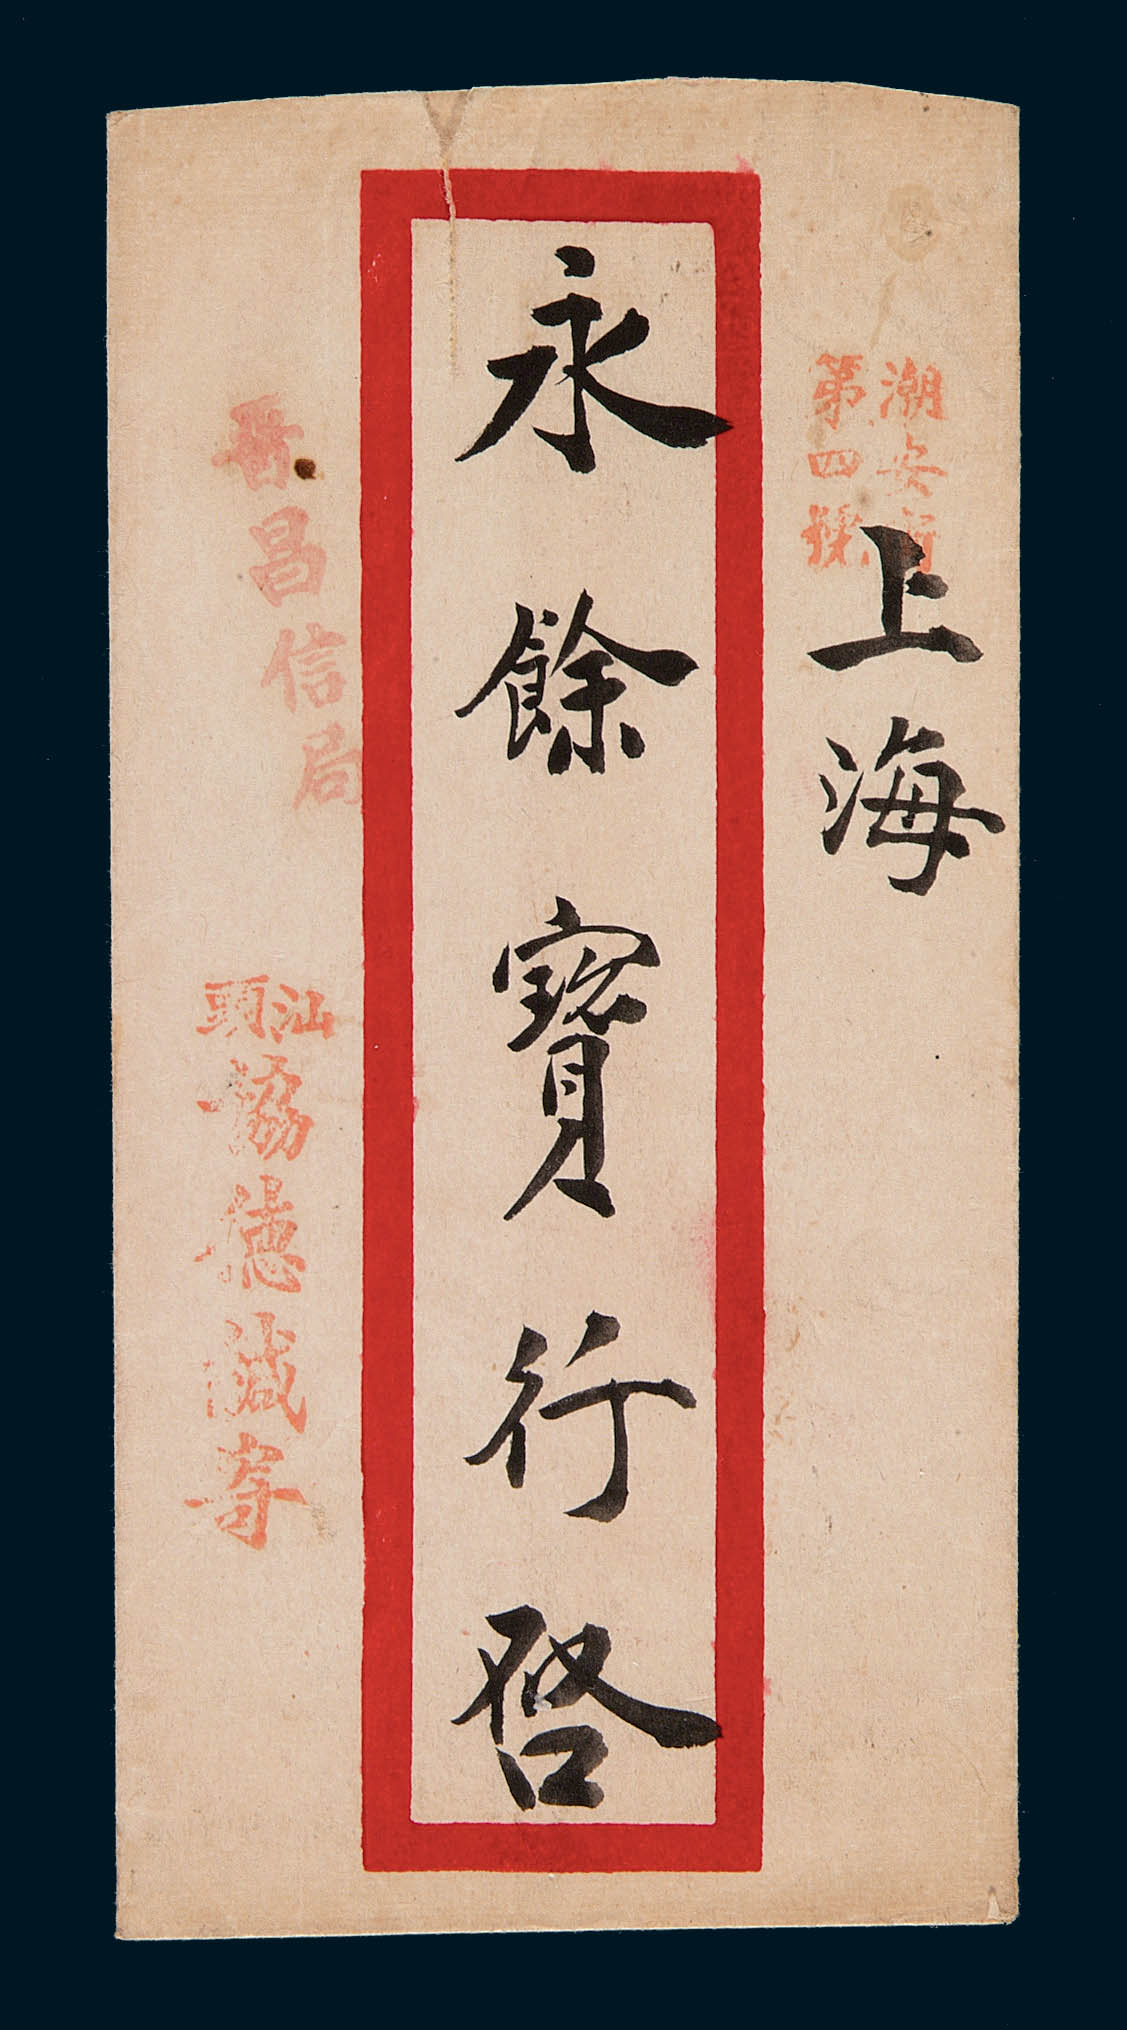 潮安街
第四號
上海
永餘寶行啓
昌信局
汕頭
協德緘寄